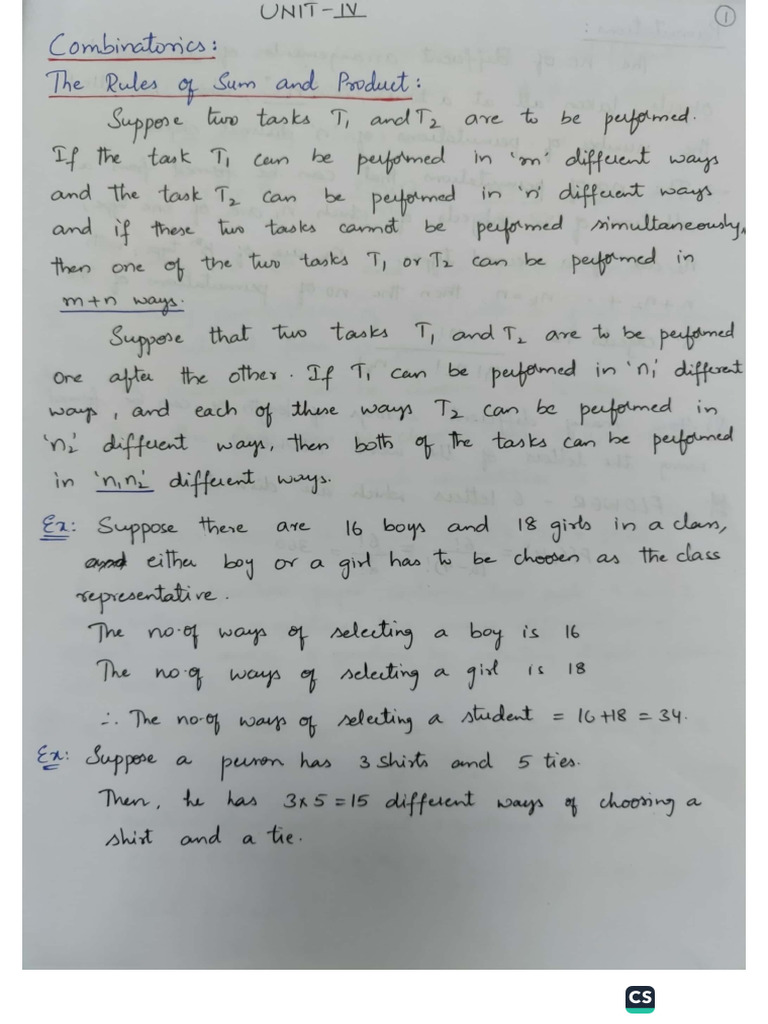 UNIT-IV
1
Combinatorics:
The Rules of Sum and Product:
Suppose two tasks T₁ and T₂ are to be performed.
If the task T₁ can be performed in 'm' different ways
and the task T₂ can be performed in 'n' different ways
and if these two tasks cannot be performed simultaneously,
then one of the two tasks T₁ or T₂ can be performed in
m+n ways.
Suppose that two tasks T₁ and T₂ are to be performed
one after the other. If T₁ can be performed in 'n₁' different
ways, and each of these ways T₂ can be performed in
'n₂' different ways, then both of the tasks can be performed
in 'n₁n₂' different ways.
Ex: Suppose there are 16 boys and 18 girls in a class,
either boy or a girl has to be choosen as the class
representative.
The no.of ways of selecting a boy is 16
The no.of ways of selecting a girl is 18
∴ The no.of ways of selecting a student = 16+18 = 34.
Ex: Suppose a person has 3 shirts and 5 ties.
Then, he has 3x5=15 different ways of choosing a
shirt and a tie.
CS